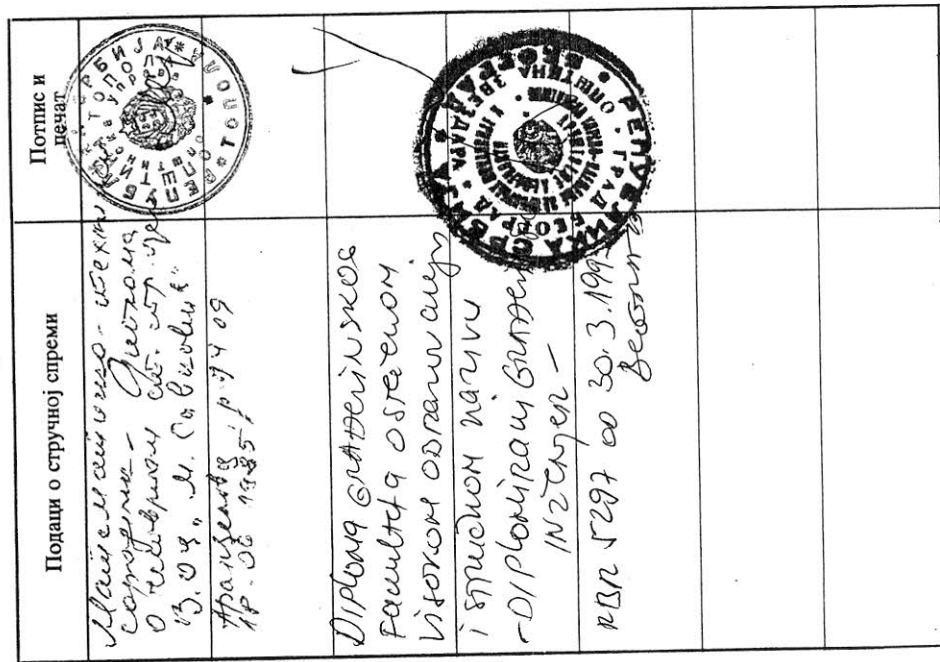 Подаци о стручној спреми
Потпис и
печат
Математичко - техн
сарадник - Диплома
о четвртом ст. стр. спр
"М. Савковић"
Аранђеловц
1985
Diploma GRAĐEVINSKOG
Fakulteta o stečenom
visokom obrazovanju
i stručnom nazivu
-DIPLOMIRANI GRAĐEV
INŽENJER-
RBR 5297 od 30.3.199
Београд
РЕПУБЛИКА СРБИЈА
ТОПОЛА
РЕПУБЛИКА СРБИЈА
ГРАД БЕОГРАД
ОПШТИНА ЗВЕЗДАРА
БЕОГРАД